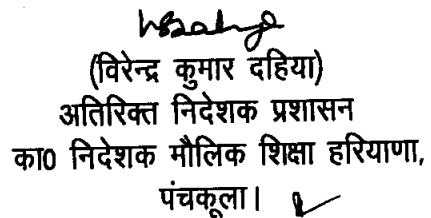 (विरेन्द्र कुमार दहिया)
अतिरिक्त निदेशक प्रशासन
का0 निदेशक मौलिक शिक्षा हरियाणा,
पंचकूला।